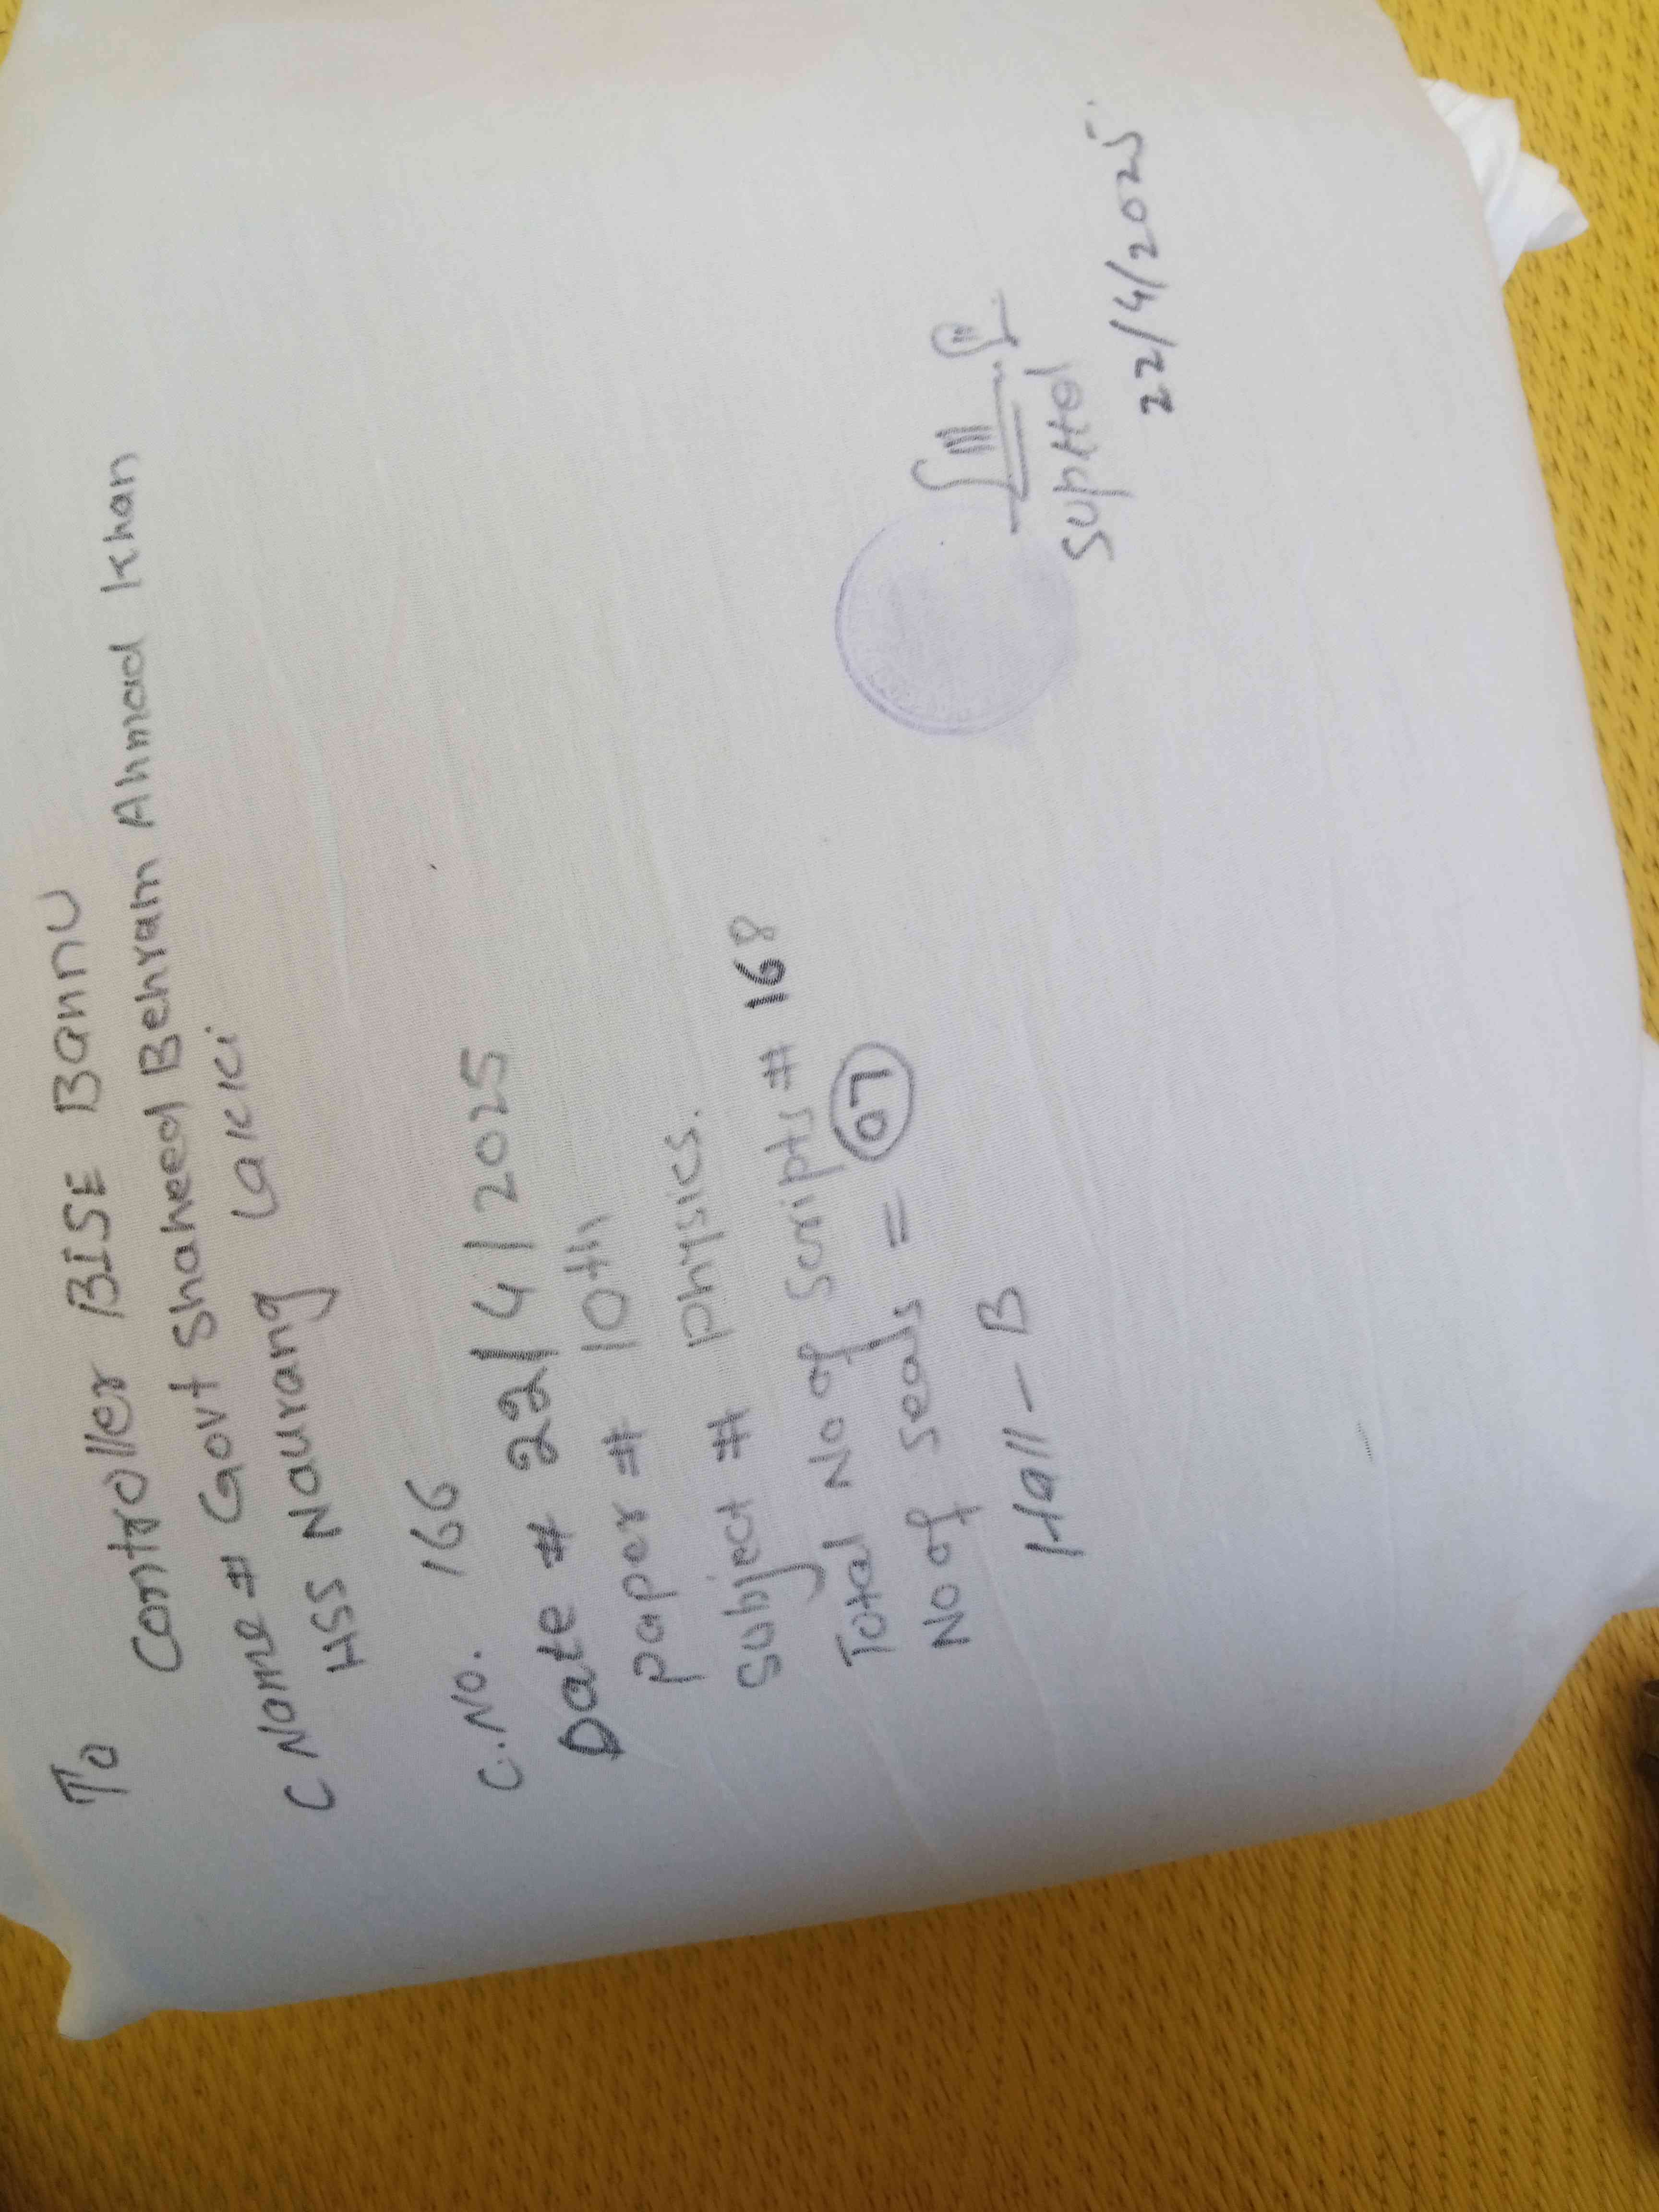 To
Controller BISE Bannu
C Name # Govt Shaheed Behram Ahmad Khan
HSS Naurang Lakki
C.No. 166
Date # 22/4/2025
paper # 10th
Subject # physics.
Total No of Scripts # 168
No of seals = 07
Hall - B
Supttd
22/4/2025